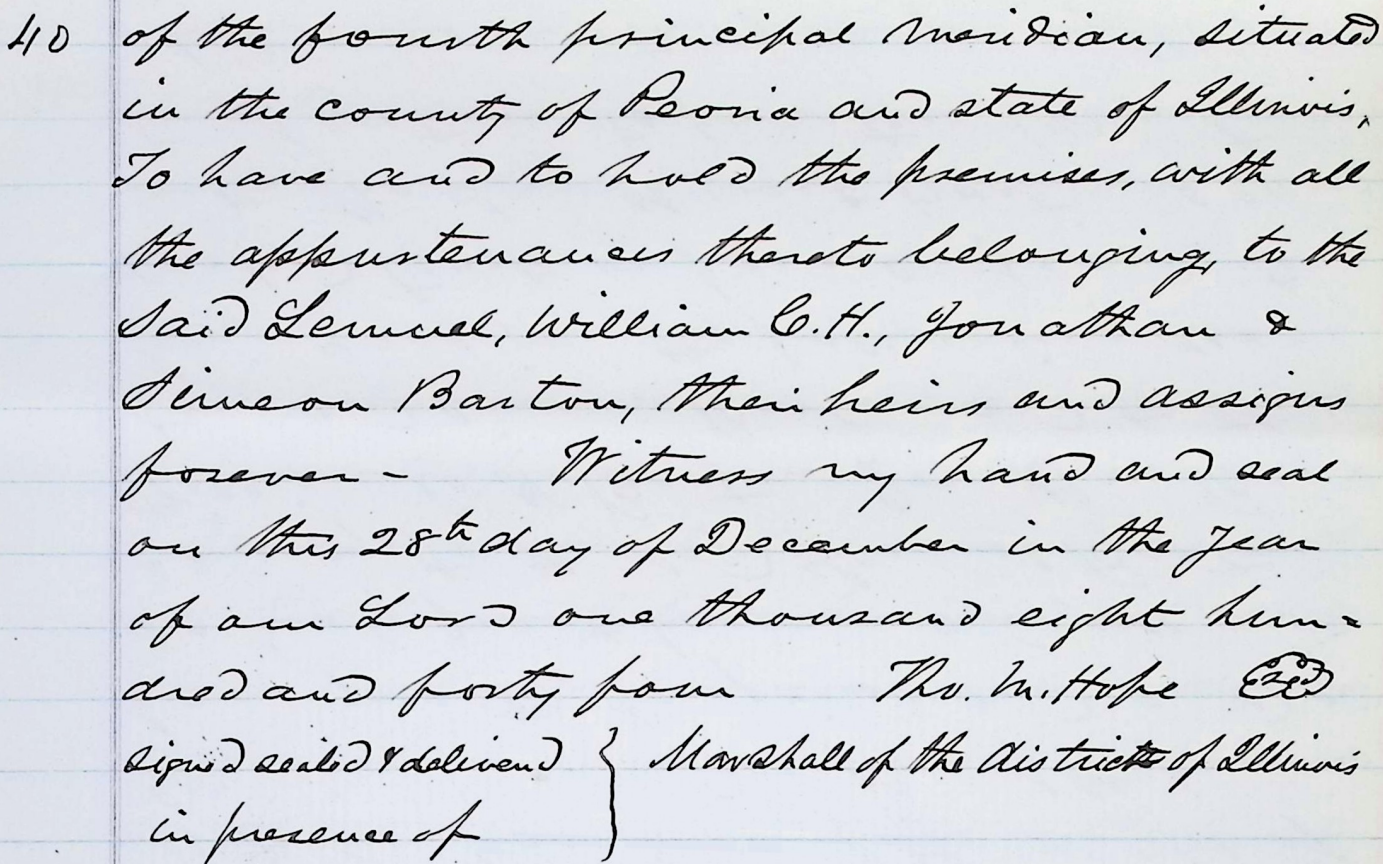 40 of the fourth principal meridian, situated
in the county of Peoria and state of Illinois,
To have and to hold the premises, with all
the appurtenances thereto belonging, to the
said Lemuel, William C. H., Jonathan &
Simeon Barton, their heirs and assigns
forever - Witness my hand and seal
on this 28th day of December in the Year
of our Lord one thousand eight hun=
dred and forty four Tho. M. Hope
signed sealed & delivered } Marshall of the district of Illinois
in presence of